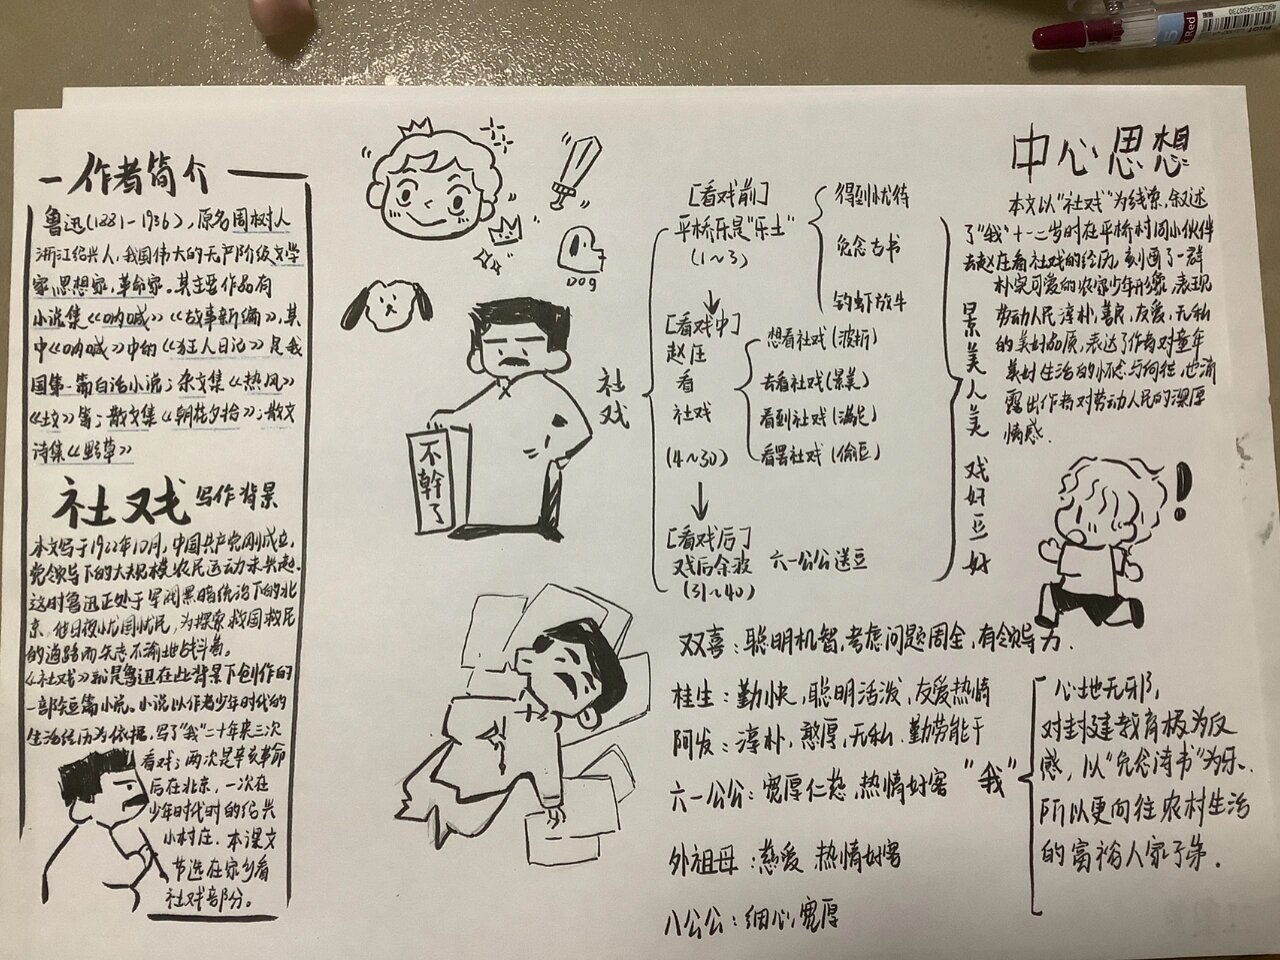 作者简介
鲁迅(1881-1936),原名周树人
浙江绍兴人,我国伟大的无产阶级文学
家,思想家,革命家。其主要作品有
小说集《呐喊》《故事新编》,其
中《呐喊》中的《狂人日记》是我
国第一篇白话小说;杂文集《热风》
《坟》等;散文集《朝花夕拾》;散文
诗集《野草》
社戏 写作背景
本文写于1922年10月,中国共产党刚成立,
党领导下的大规模农民运动未兴起.
这时鲁迅正处于军阀黑暗统治下的北
京,他日夜忧国忧民,为探索救国救民
的道路而矢志不渝地战斗着。
《社戏》就是鲁迅在此背景下创作的
一部短篇小说。小说以作者少年时代的
生活经历为依据,写了"我"二十年来三次
看戏;两次是辛亥革命
后在北京,一次在
少年时代时的绍兴
小村庄.本课文
节选在家乡看
社戏部分。
DOG
不幹了
社戏
[看戏前]
平桥乐是"乐土"
(1~3)
得到优待
免念古书
钓虾放牛
[看戏中]
赵庄
看
社戏
(4~30)
想看社戏(波折)
去看社戏(景美)
看到社戏(满足)
看罢社戏(偷豆)
[看戏后]
戏后余波
(31~40)
六一公公送豆
景美人美 戏好豆好
中心思想
本文以"社戏"为线索,叙述
了"我"十一二岁时在平桥村同小伙伴
去赵庄看社戏的经历,刻画了一群
朴实可爱的农家少年形象,表现
劳动人民淳朴,善良,友爱,无私
的美好品质,表达了作者对童年
美好生活的怀念与向往,也流
露出作者对劳动人民的深厚
情感.
!
双喜:聪明机智,考虑问题周全,有领导力
桂生:勤快,聪明活泼,友爱热情
阿发:淳朴,憨厚,无私.勤劳能干
六一公公:宽厚仁慈,热情好客
外祖母:慈爱 热情好客
八公公:细心,宽厚
"我"
心地无邪,
对封建教育极为反
感,以"免念诗书"为乐.
所以更向往农村生活
的富裕人家子弟.